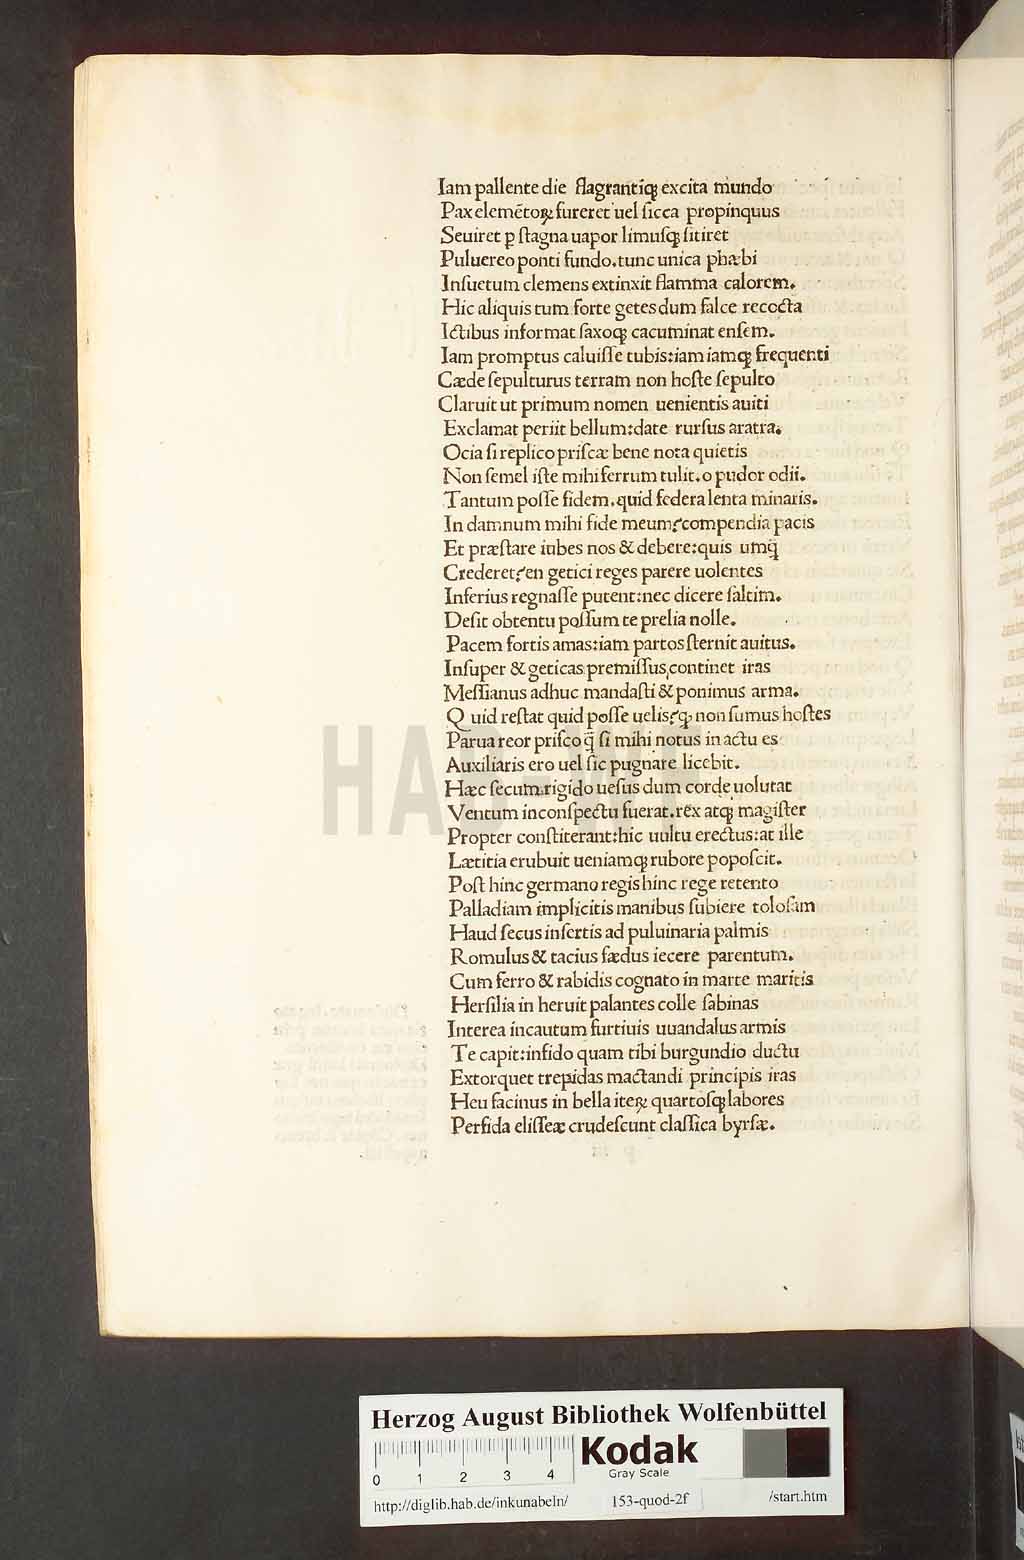 Iam pallente die flagrantiqꝫ excita mundo
Pax elemētoꝝ fureret uel sicca propinquus
Seuiret ꝑ stagna uapor limusqꝫ sitiret
Puluereo ponti fundo. tunc unica phæbi
Insuetum clemens extinxit flamma calorem.
Hic aliquis tum forte getes dum falce recocta
Ictibus informat saxoqꝫ cacuminat ensem.
Iam promptus caluisse tubis: iam iamqꝫ frequenti
Cæde sepulturus terram non hoste sepulto
Claruit ut primum nomen uenientis auiti
Exclamat periit bellum: date rursus aratra.
Ocia si replico priscæ bene nota quietis
Non semel iste mihi ferrum tulit. o pudor odii.
Tantum posse fidem. quid federa lenta minaris.
In damnum mihi fide meum? compendia pacis
Et præstare iubes nos & debere: quis umq̃
Crederet? en getici reges parere uolentes
Inferius regnasse putent: nec dicere saltim.
Desit obtentu possum te prelia nolle.
Pacem fortis amas: iam partos sternit auitus.
Insuper & geticas premissus continet iras
Messianus adhuc mandasti & ponimus arma.
Quid restat quid posse uelis? qꝫ non sumus hostes
Parua reor prisco q̃ si mihi notus in actu es
Auxiliaris ero uel sic pugnare licebit.
Hæc secum rigido uesus dum corde uolutat
Ventum inconspectu fuerat. rex atqꝫ magister
Propter constiterant: hic uultu erectus: at ille
Lætitia erubuit ueniamqꝫ rubore poposcit.
Post hinc germano regis hinc rege retento
Palladiam implicitis manibus subiere tolosam
Haud secus insertis ad puluinaria palmis
Romulus & tacius fædus iecere parentum.
Cum ferro & rabidis cognato in marte maritis
Hersilia in heruit palantes colle sabinas
Interea incautum furtiuis uuandalus armis
Te capit: infido quam tibi burgundio ductu
Extorquet trepidas mactandi principis iras
Heu facinus in bella iteꝝ quartosqꝫ labores
Perfida elisseæ crudescunt classica byrsæ.
HAB-WF
Herzog August Bibliothek Wolfenbüttel
0 1 2 3 4
Kodak
Gray Scale
http://diglib.hab.de/inkunabeln/ 153-quod-2f /start.htm